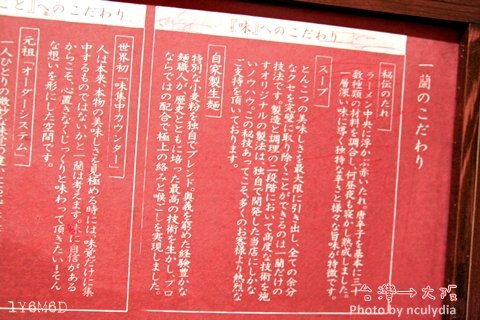 一蘭のこだわり
『味』へのこだわり
秘伝のたれ
ラーメン中央に浮かぶ赤いたれ。唐辛子を基本に三十
数種類の材料を調合し、何昼夜も寝かし熟成しました。
一層深い味に導く、独特な辛さと様々な旨味が特徴です。
スープ
とんこつの美味しさを最大限に引き出し、全ての余分
なクセを完璧に取り除くことができるのは、一蘭だけの
技法です。製造と調理の二段階において高度な技術を施
すオリジナルの製法は、独自で開発した当店にしかな
いノウハウ。この秘技あってこそ、多くのお客様より熱烈な
ご支持を頂いております。
自家製生麺
特別な小麦粉を独自でブレンド。奥義を窮めた経験豊かな
麺職人が、歴史とともに培った最高の技術を生かし、プロ
ならではの配合で極上の絡みと喉ごしを実現しました。
へのこだわり
世界初「味集中カウンター」
人は本来、本物の美味しさを見極める時には、味覚だけに集
中するものではないかと一蘭は考えます。味に自信がある
からこそ、心置きなくじっくりと味わって頂きたい!そん
な想いを形にした空間です。
元祖「オーダーシステム」
一人ひとりの微妙な
1Y6M6D
台灣→大阪
Photo by nculydia